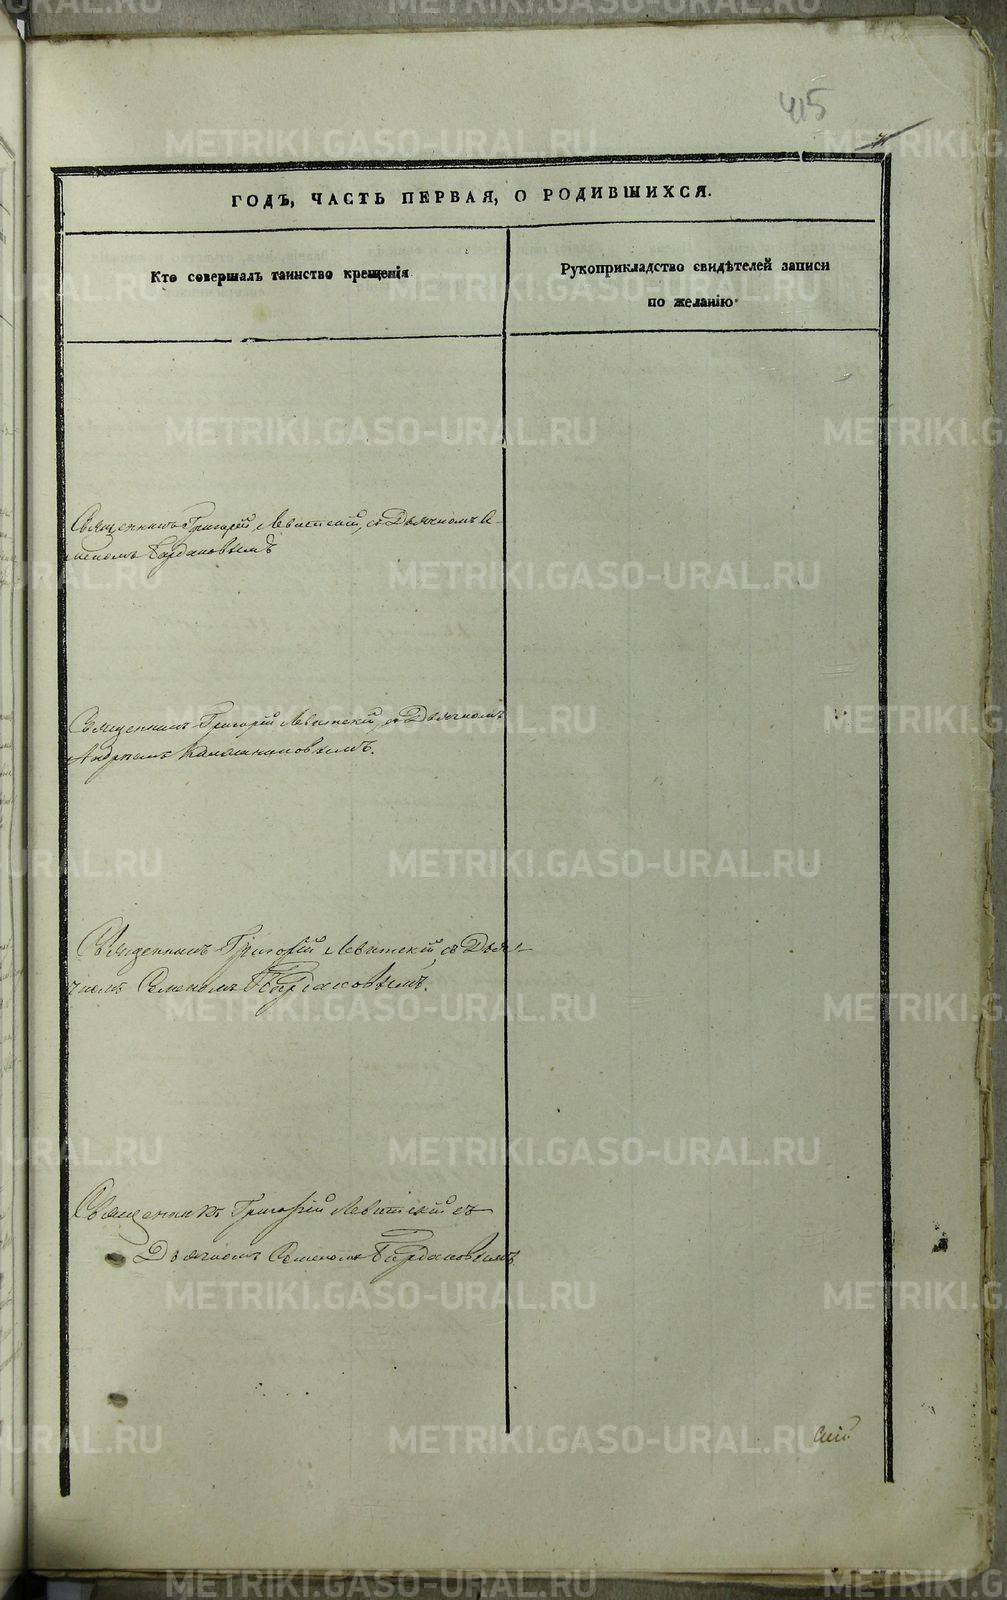 415
ГОДЪ, ЧАСТЬ ПЕРВАЯ, О РОДИВШИХСЯ.
Кто совершалъ таинство крещенія
Рукоприкладство свидѣтелей записи
по желанію
Священникъ Григорій Левитскій, съ Дьячкомъ
Священникъ Григорій Левитскій, съ Дьячкомъ
Андреемъ
Священникъ Григорій Левитскій съ Дья-
чкомъ Семеномъ
Священникъ Григорій Левитскій съ
Дьячкомъ Семеномъ
METRIKI.GASO-URAL.RU